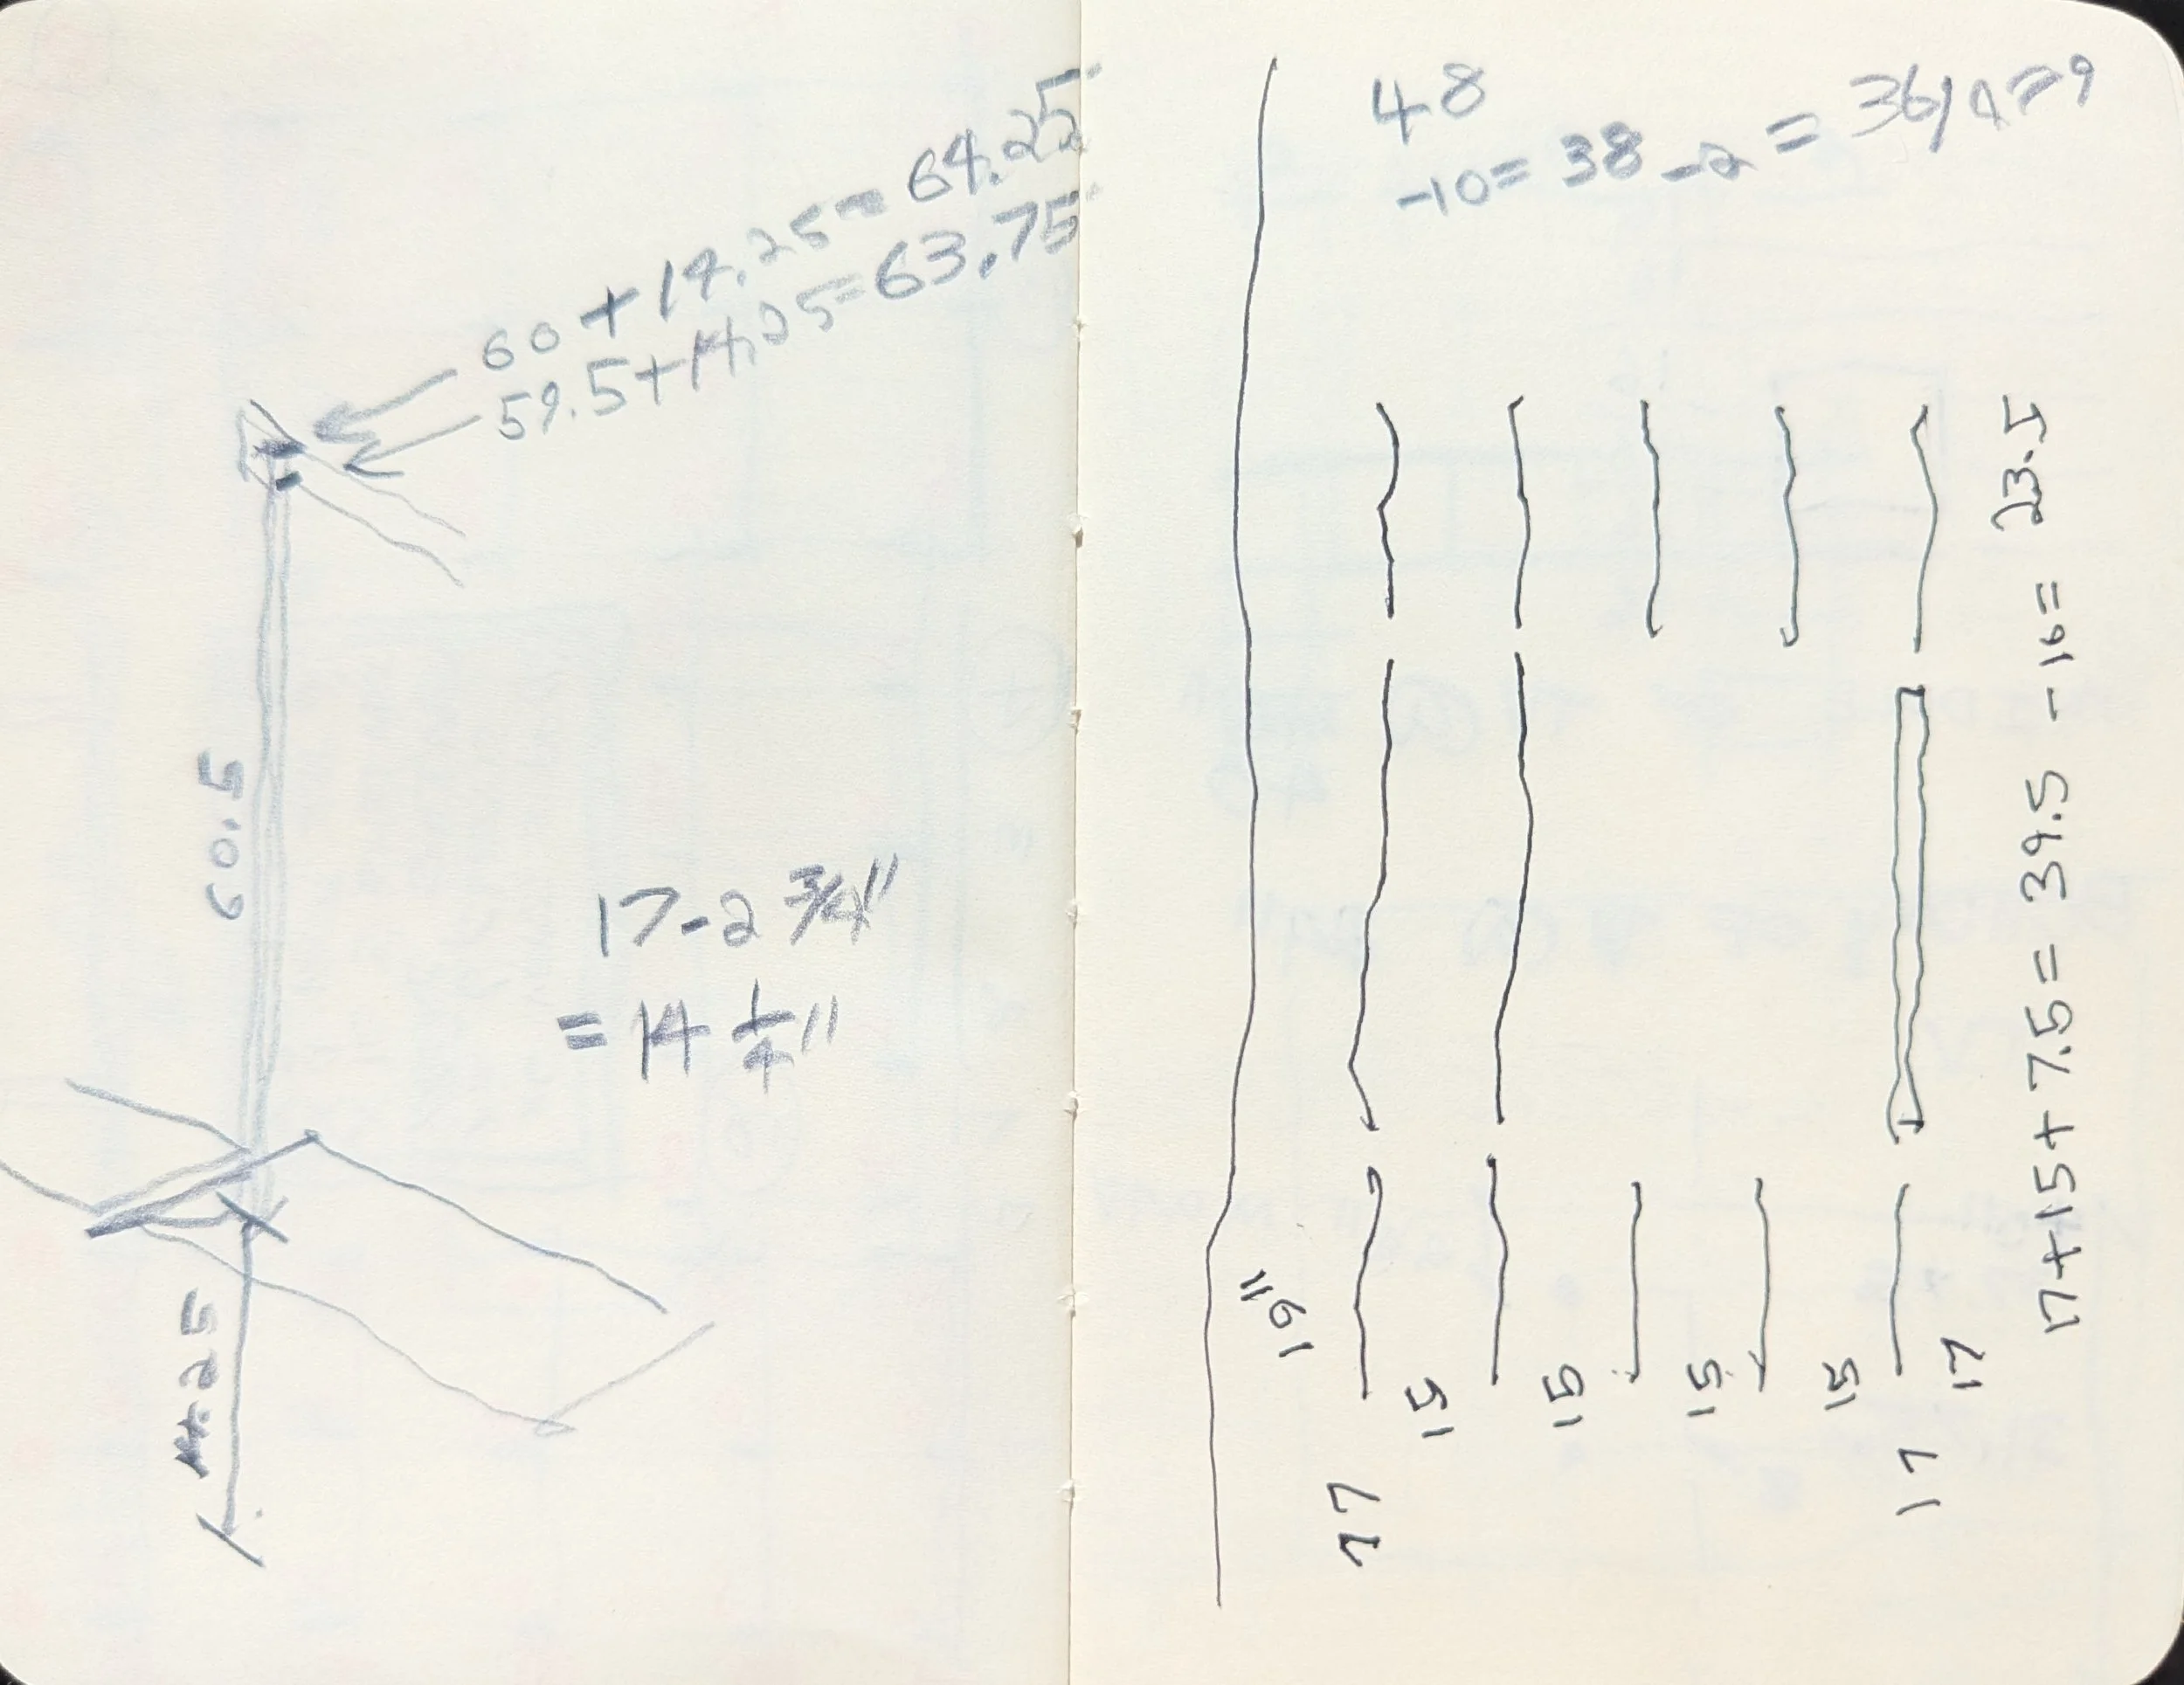 60 + 14.25 = 64.25
59.5 + 14.25 = 63.75
60.5
17 - 2 3/4"
= 14 1/4"
14.25
48
-10 = 38 - 2 = 36/4 = 9
16"
17
15
15
15
15
17
17
17+15+7.5 = 39.5 - 16 = 23.5